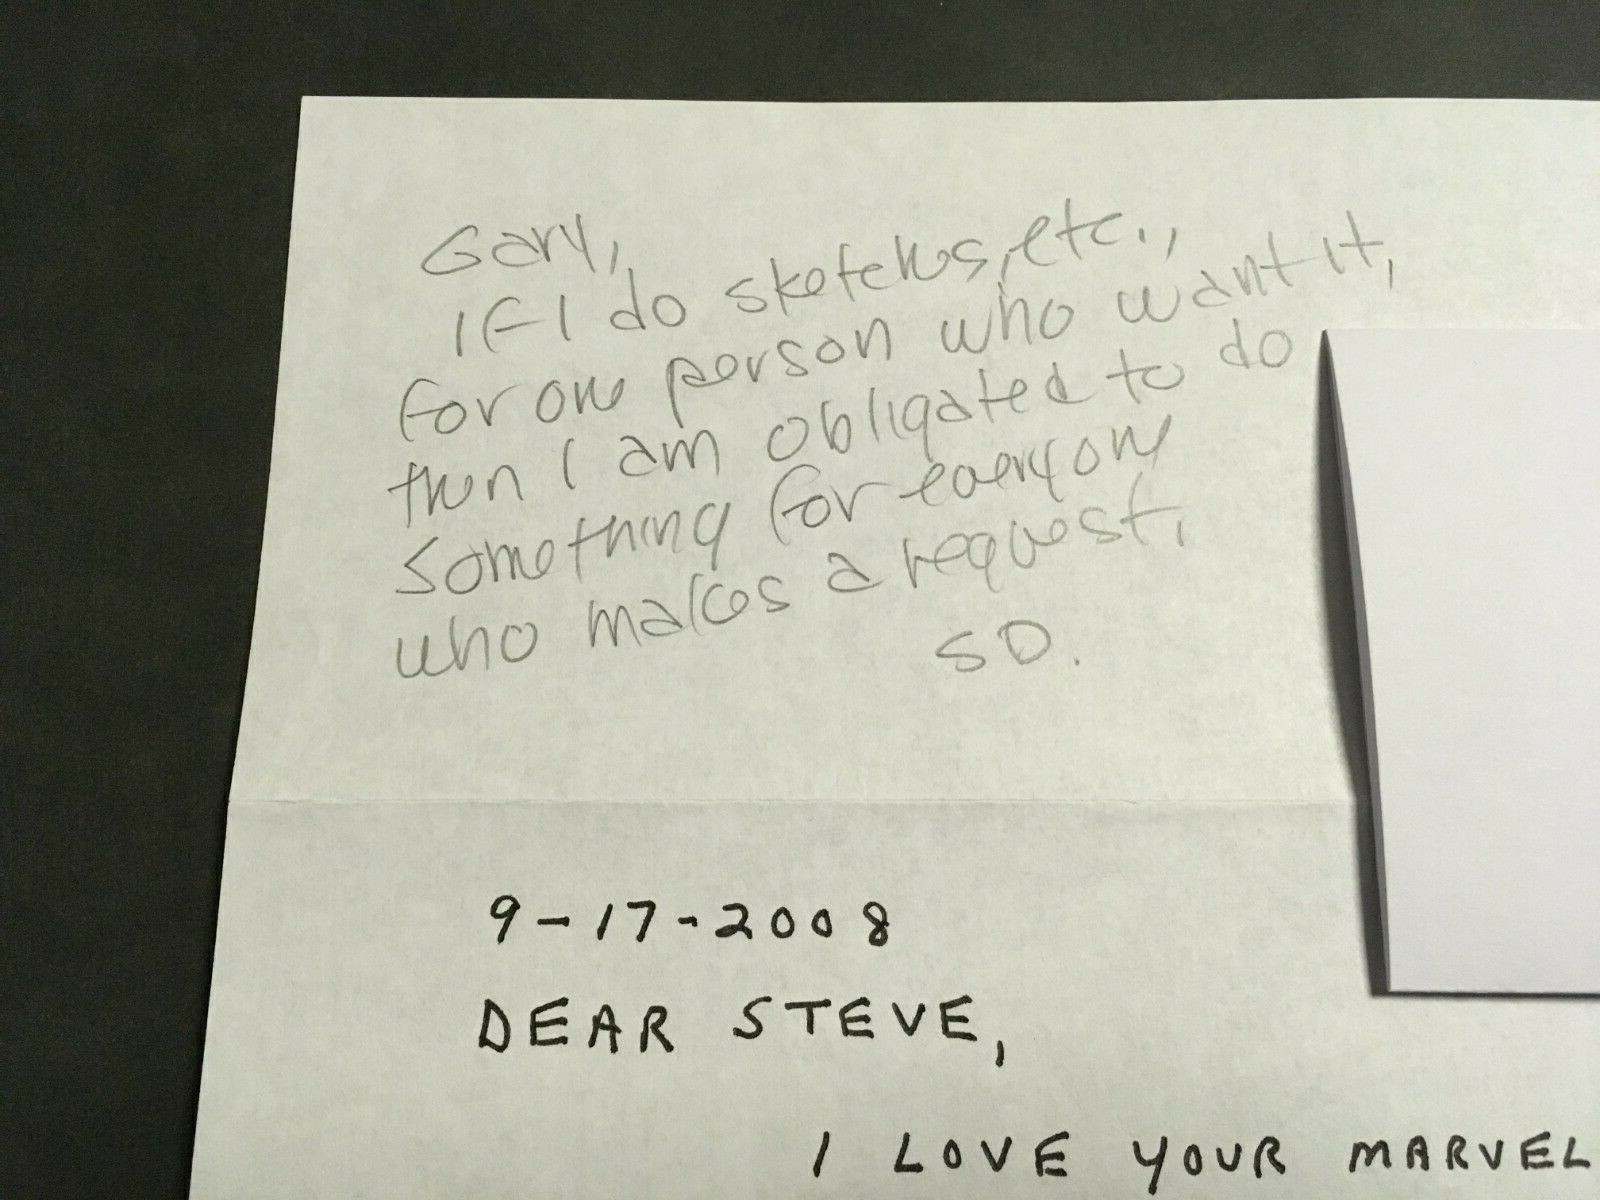 Gary,
If I do sketches, etc.,
for one person who want it,
then I am obligated to do
something for everyone
who makes a request.
SD.
9-17-2008
DEAR STEVE,
I LOVE YOUR MARVEL